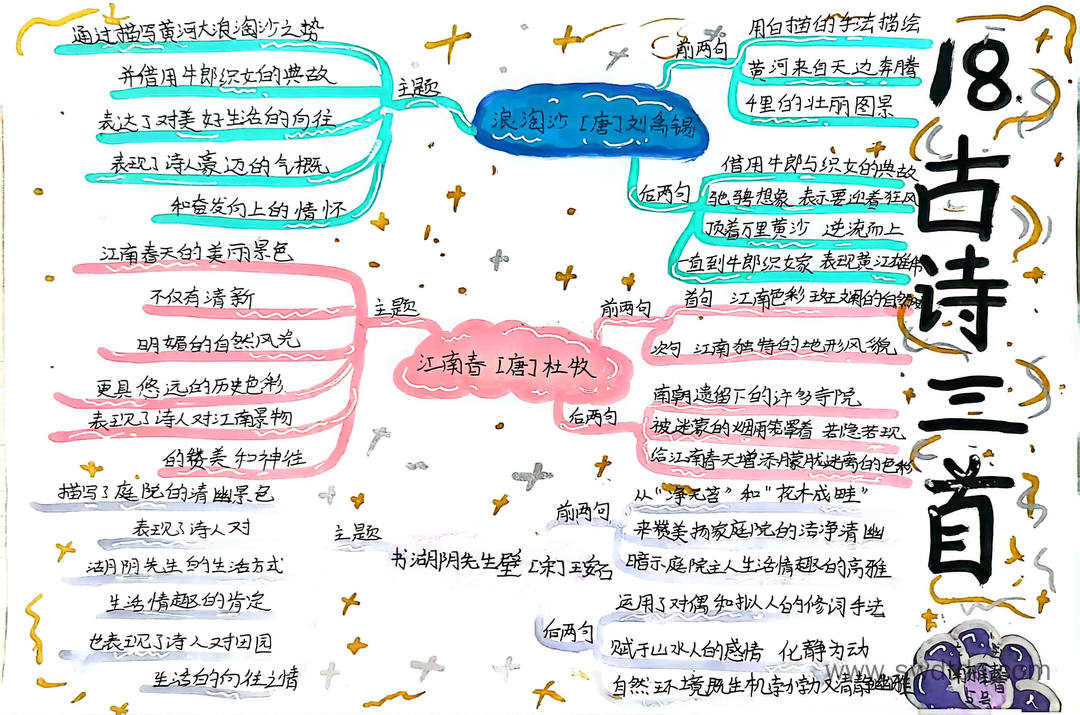 18
古诗三首
浪淘沙 [唐]刘禹锡
主题
通过描写黄河大浪淘沙之势
并借用牛郎织女的典故
表达了对美好生活的向往
表现了诗人豪迈的气概
和奋发向上的情怀
前两句
用白描的手法描绘
黄河来自天边奔腾
4里的壮丽图景
后两句
借用牛郎与织女的典故
驰骋想象 表示要迎着狂风
顶着万里黄沙 逆流而上
一直到牛郎织女家 表现黄江雄伟
江南春 [唐]杜牧
主题
江南春天的美丽景色
不仅有清新
明媚的自然风光
更具悠远的历史色彩
表现了诗人对江南景物
的赞美和神往
前两句
首句 江南色彩斑斓的自然
次句 江南独特的地形风貌
后两句
南朝遗留下的许多寺院
被迷蒙的烟雨笼罩着 若隐若现
给江南春天增添朦胧迷离的色彩
书湖阴先生壁 [宋]王安石
主题
描写了庭院的清幽景色
表现了诗人对
湖阴先生的生活方式
生活情趣的肯定
也表现了诗人对田园
生活的向往之情
前两句
从“净无苔”和“花木成畦”
来赞美扬家庭院的洁净清幽
暗示庭院主人生活情趣的高雅
后两句
运用了对偶和拟人的修词手法
赋于山水人的感情 化静为动
自然环境既生机勃勃又清静幽雅